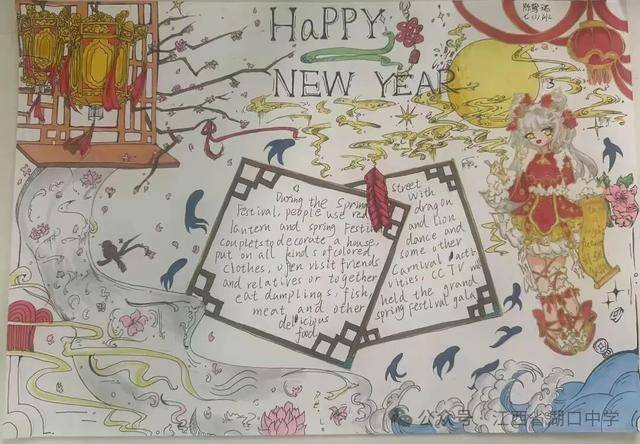 HaPPY
NEW YEAR
During the Spring
Festival, people use red
lantern and spring Festival
couplets to decorate a house,
put on all kinds of colored
clothes, often visit friends
and relatives or together
eat dumplings, fish,
meat and other
delicious
food.
street
with
dragon
and lion
dance and
some other
carnival acti
vities, CCTV will
held the grand
spring festival gala
公众号·江西省湖口中学